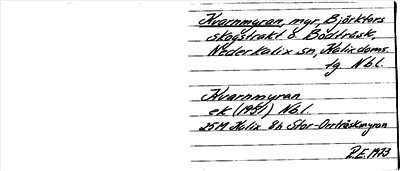 Kvarnmyran, myr, Björkfors
skogstrakt o. Bodträsk,
Nederkalix sn, Kalix doms.
tg Nbl.
Kvarnmyran
ek (1951) Nbl.
25M Kalix 8h Stor-Orrträskmyran
R.E. 1973